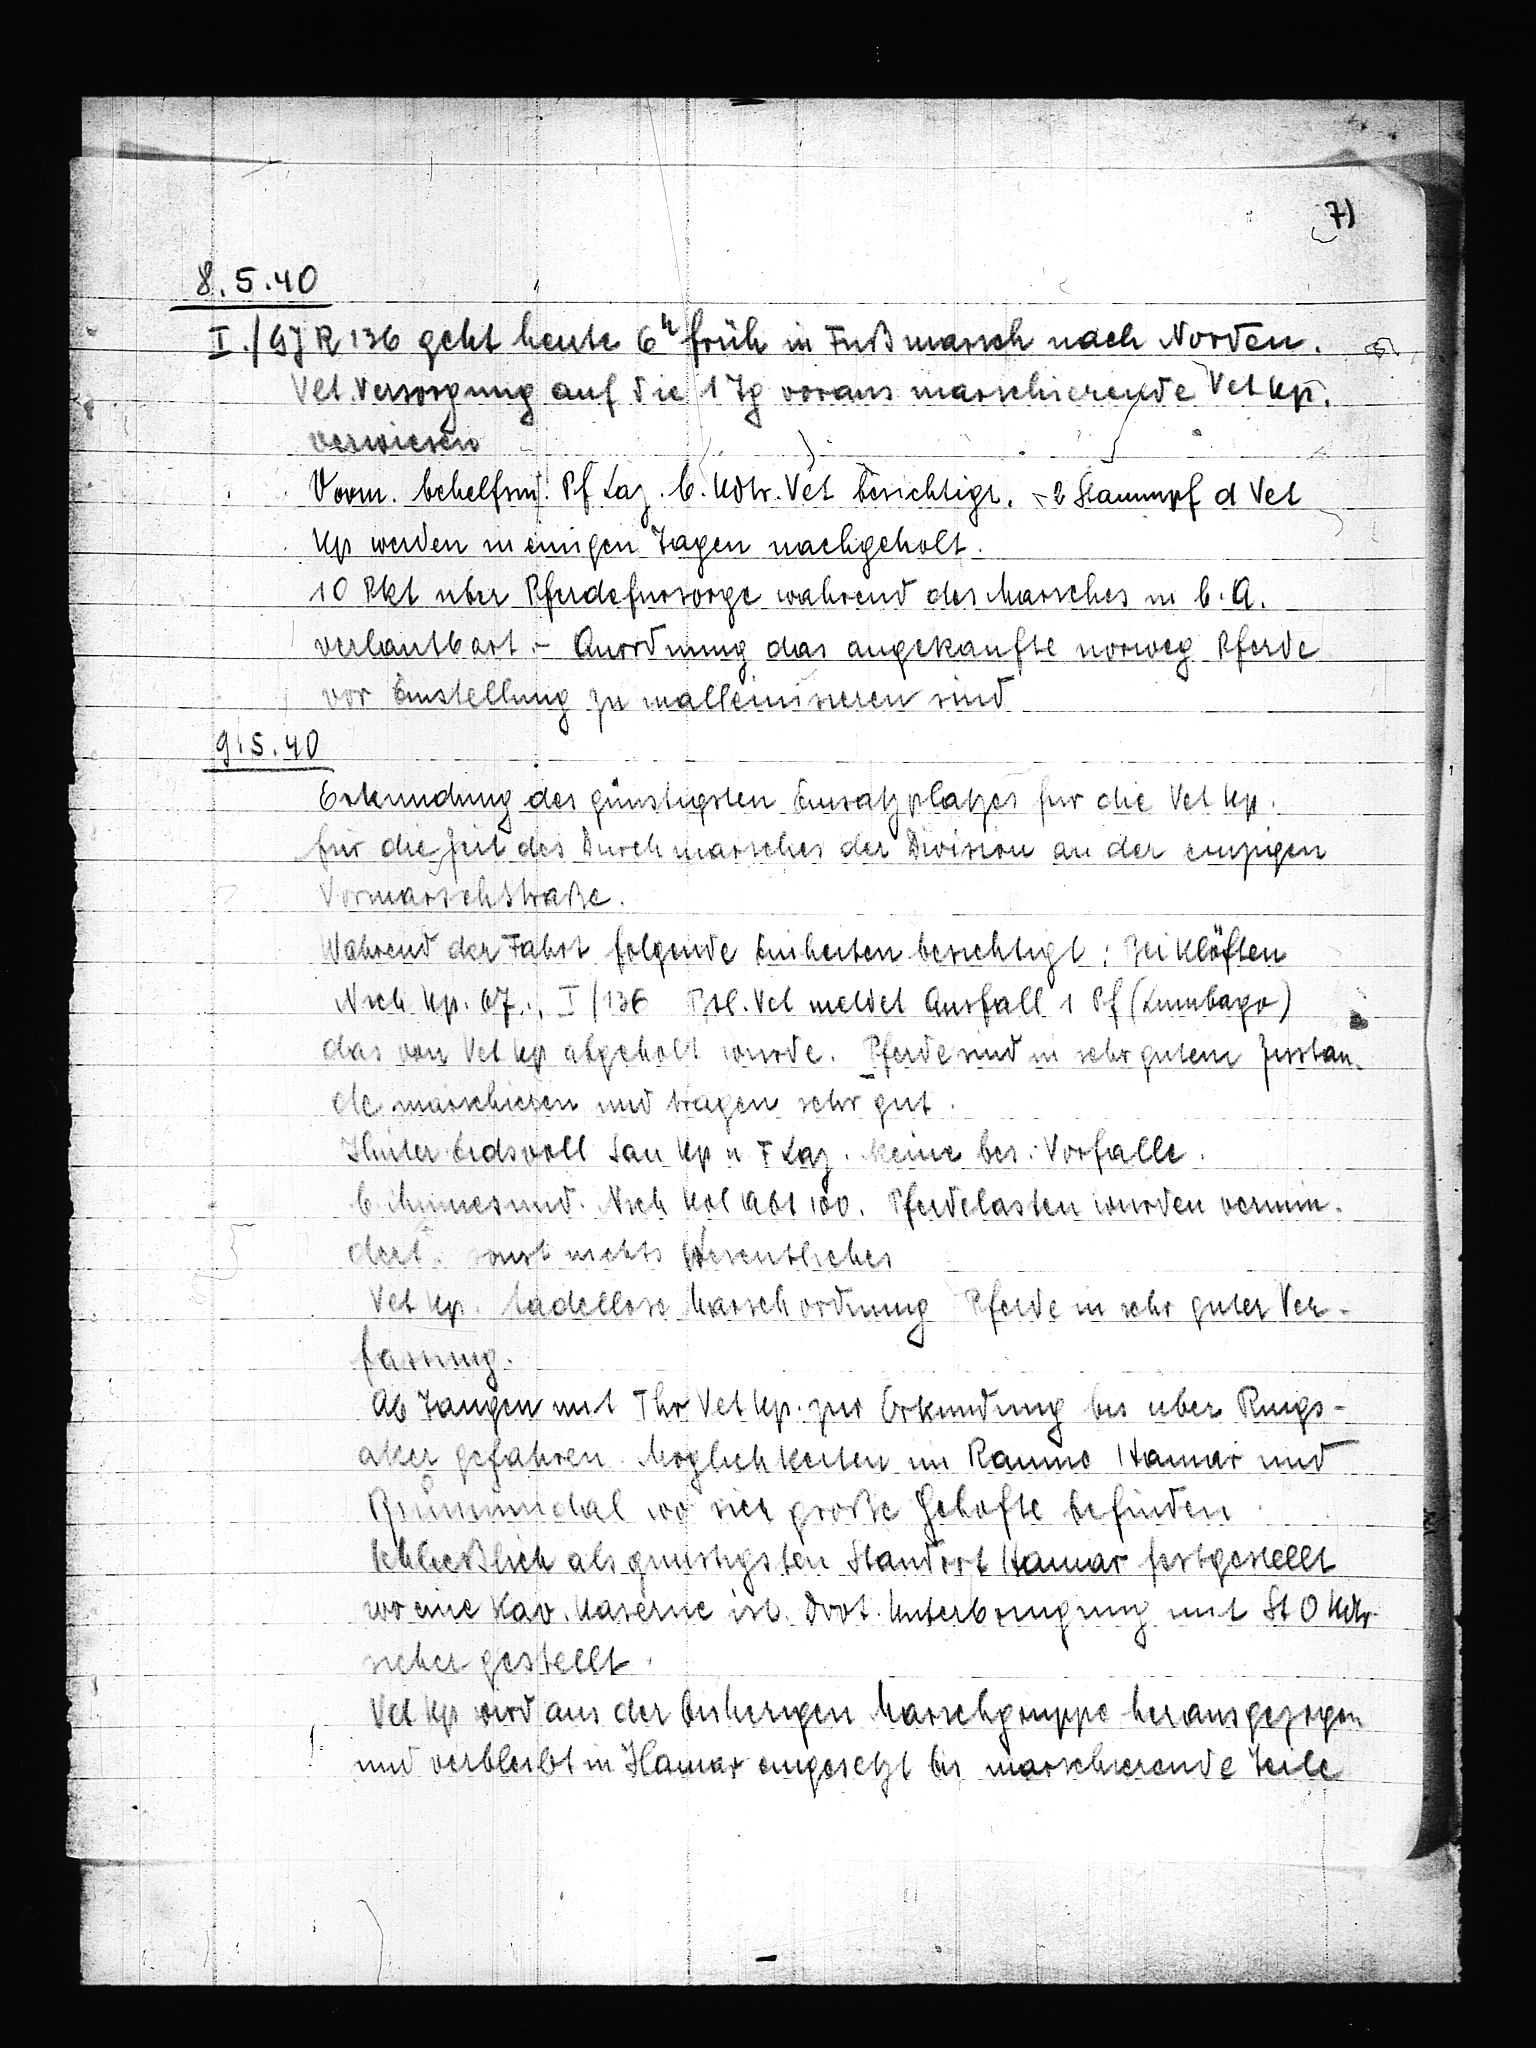 7)
8.5.40
I./GJR 136 geht heute 6h früh in Fußmarsch nach Norden.
Vet. Versorgung auf die 1 Tg voraus marschierende Vet Kp.
verwiesen
Vorm. behelfsm. Pf Laz. b. Kdtr. Vet besichtigt. - 2 Stammpf d Vet
Kp werden in einigen Tagen nachgeholt.
10 Pkt uber Pferdefursorge wahrend des Marsches in b. A.
verlautbart. - Anordnung das angekaufte norweg Pferde
vor Einstellung zu malleinisieren sind
9.5.40
Erkundung des günstigsten Einsatzplatzes fur die Vet Kp.
für die Zeit des Durchmarsches der Division an der einzigen
Vormarschstraße.
Wahrend der Fahrt folgende Einheiten besichtigt: Bei Klöften
Nach Kp. 67., I/136 Btl. Vet meldet Ausfall 1 Pf (Lumbago)
das von Vet Kp abgeholt wurde. Pferde sind in sehr gutem Zustan-
de marschieren und tragen sehr gut.
Hinter Eidsvoll San Kp u F Laz. keine bes. Vorfalle.
b. Minnesund. Nach Kol Abt 100. Pferdelasten wurden vermin-
dert. sonst nichts Wesentliches
Vet Kp. tadellose Marschordnung Pferde in sehr guter Ver-
fassung.
Ab Tangen mit Thr Vet Kp. zur Erkundung bis uber Rings-
aker gefahren. Moglichkeiten im Raume Hamar und
Brummundal wo sich große Gehofte befinden.
schließlich als gunstigsten Standort Hamar festgestellt
wo eine Kav. Kaserne ist. Dort. Unterbringung mit St O Kdtr.
sicher gestellt.
Vet Kp wird aus der bisherigen Marschgruppe herausgezogen
und verbleibt in Hamar eingesetzt bis marschierende Teile